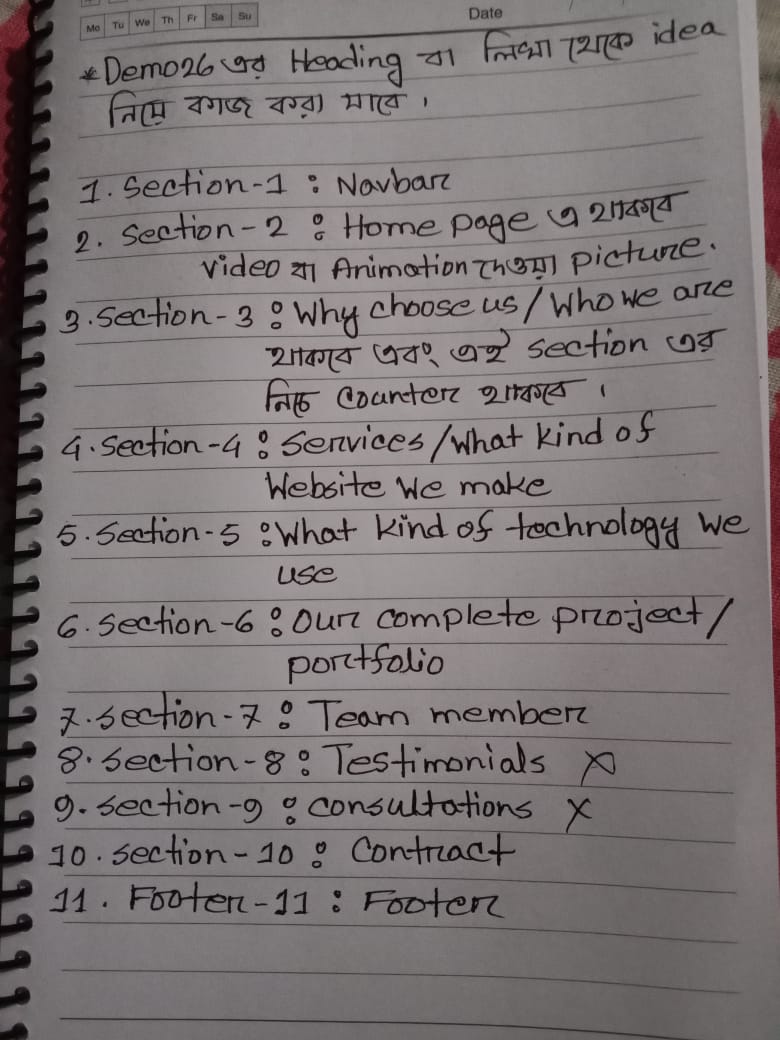 Mo Tu We Th Fr Sa Su
Date
* Demo26 এর Heading বা লিখা থেকে idea
নিয়ে কাজ করা যাবে ।
1. Section-1 : Navbar
2. Section-2 : Home page এ থাকবে
video বা Animation দেওয়া picture.
3. Section-3 : Why choose us / Who we are
থাকবে এবং এই section এর
নিচে counter থাকবে ।
4. Section-4 : Services/What kind of
Website We make
5. Section-5 : What kind of technology we
use
6. Section-6 : Our complete project/
portfolio
7. Section-7 : Team member
8. Section-8 : Testimonials X
9. Section-9 : consultations X
10. Section-10 : Contract
11. Footer-11 : Footer